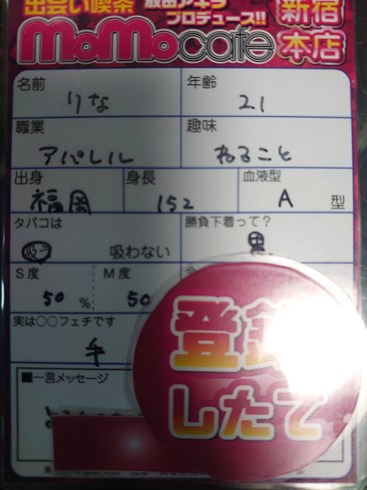 出会い喫茶
プロデュース!!
MoMocafe
新宿
本店
名前
りな
年齢
21
職業
アパレル
趣味
ねること
出身
福岡
身長
152
血液型
A 型
タバコは
吸う 吸わない
勝負下着って?
黒
S度
50 %
M度
50
実は〇〇フェチです
手
■一言メッセージ
登録
したて